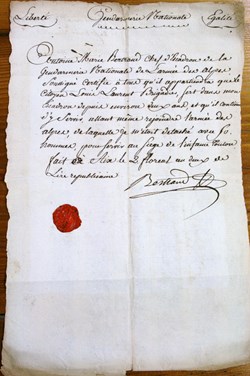 Liberté Gendarmerie Nationale Egalité
Antoine Marie Bertrand Chef d'Escadron de la
Gendarmerie Nationale de l'armée des alpes
Soussigné Certifie à tous qu'il appartiendra que le
Citoyen Louis Laurent Brigadier, sert dans mon
Escadron depuis environ deux ans et qu'il continue
d'y Servir allant même rejoindre l'armée des
alpes de laquelle je m'étais détaché avec
hommes pour servir au Siège de l'infame toulon
fait
Ère républicaine
Bertrand